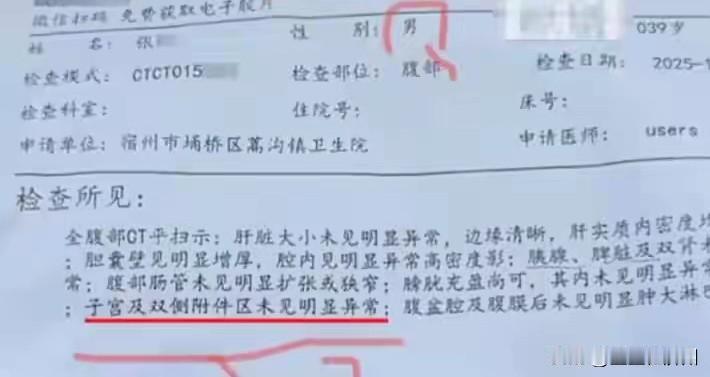 微信扫码 免费获取电子胶片
姓 名: 张 性 别: 男 039岁
检查模式: CTCT015 检查部位: 腹部 检查日期: 2025-1
检查科室: 住院号: 床号:
申请单位: 宿州市埇桥区蒿沟镇卫生院 申请医师: users
检查所见:
全腹部CT平扫示: 肝脏大小未见明显异常, 边缘清晰, 肝实质内密度均
; 胆囊壁见明显增厚, 腔内见明显异常高密度影; 胰腺、脾脏及双肾未
常; 腹部肠管未见明显扩张或狭窄; 膀胱充盈尚可, 其内未见明显异常
; 子宫及双侧附件区未见明显异常; 腹盆腔及腹膜后未见明显肿大淋巴